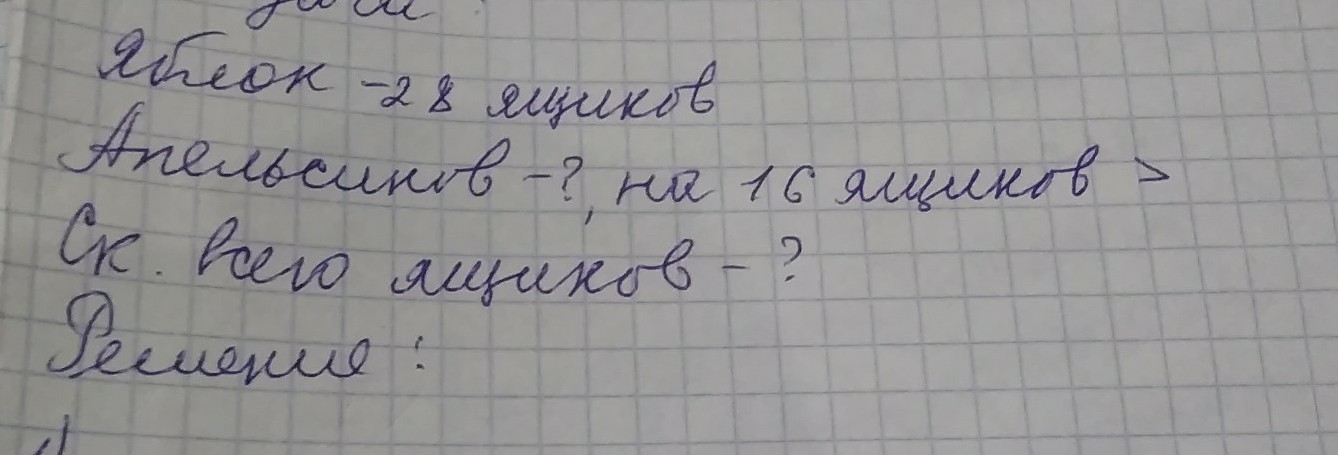 Яблок - 28 ящиков
Апельсинов - ?, на 16 ящиков >
Ск. всего ящиков - ?
Решение :